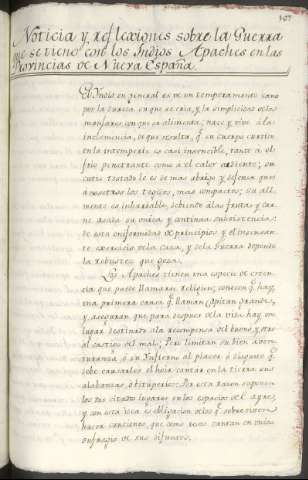 107
Noticia y reflexiones sobre la Guerra
que se tiene con los Indios Apaches en las
Provincias de Nueva España.
El Yndio en general es de un temperamento sano
por la dureza en que se cria, y la simplicidad de los
manjares con que se alimenta; nace y vive á la
inclemencia, de que resulta, q.e su cuerpo curtido
en la intemperie es casi invencible, tanto al
frio penetrante como á el calor ardiente; su
cutis tostado le es de mas abrigo y defensa que
á nosotros los tegidos mas compactos; su ali-
mento es invariable, debiendo á las frutas y car-
ne asada su unica y continua subsistencia:
de esta uniformidad de principios y el incesan-
te exercicio de la caza, y de la Guerra depende
la robustez que goza.
Los Apaches tienen una especie de creen-
cia que puede llamarse Religion; conocen q.e hay
una primera causa q.e llaman Capitan grande,
y aseguran que para despues de la vida hay un
lugar destinado á la recompensa del bueno, y otro
al castigo del malo; Pero limitan su bien aven-
turanza ó su Ynfierno al placer ó disgusto q.e
debe causarles el hoir cantar en la tierra sus
alabanzas, ó vituperios: Por esta razon suponen
los dos citados lugares en los espacios del ayre,
y con esta idea es obligacion de los q.e sobreviven
hacer canciones, que como tales cantan en
sufragio de sus difuntos.